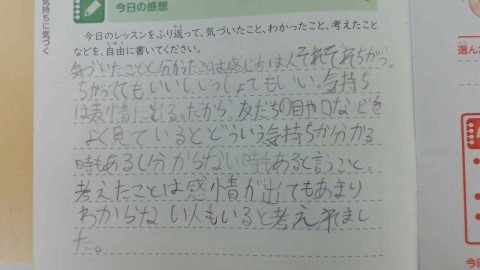 今日の感想
今日のレッスンをふり返って、気づいたこと、わかったこと、考えたこと
などを、自由に書いてください。
気づいたことと分かったことは感じ方は人それぞれちがう。
ちがってもいいし、いっしょでもいい。気持ち
は表情にでる。だから、友だちの目や口などを
よく見ているとどういう気持ちか分かる
時もあるし分からない時もあると言うこと。
考えたことは感情が出てもあまり
わからない人もいると考えれまし
た。
気持ちに気づく
選ん
今